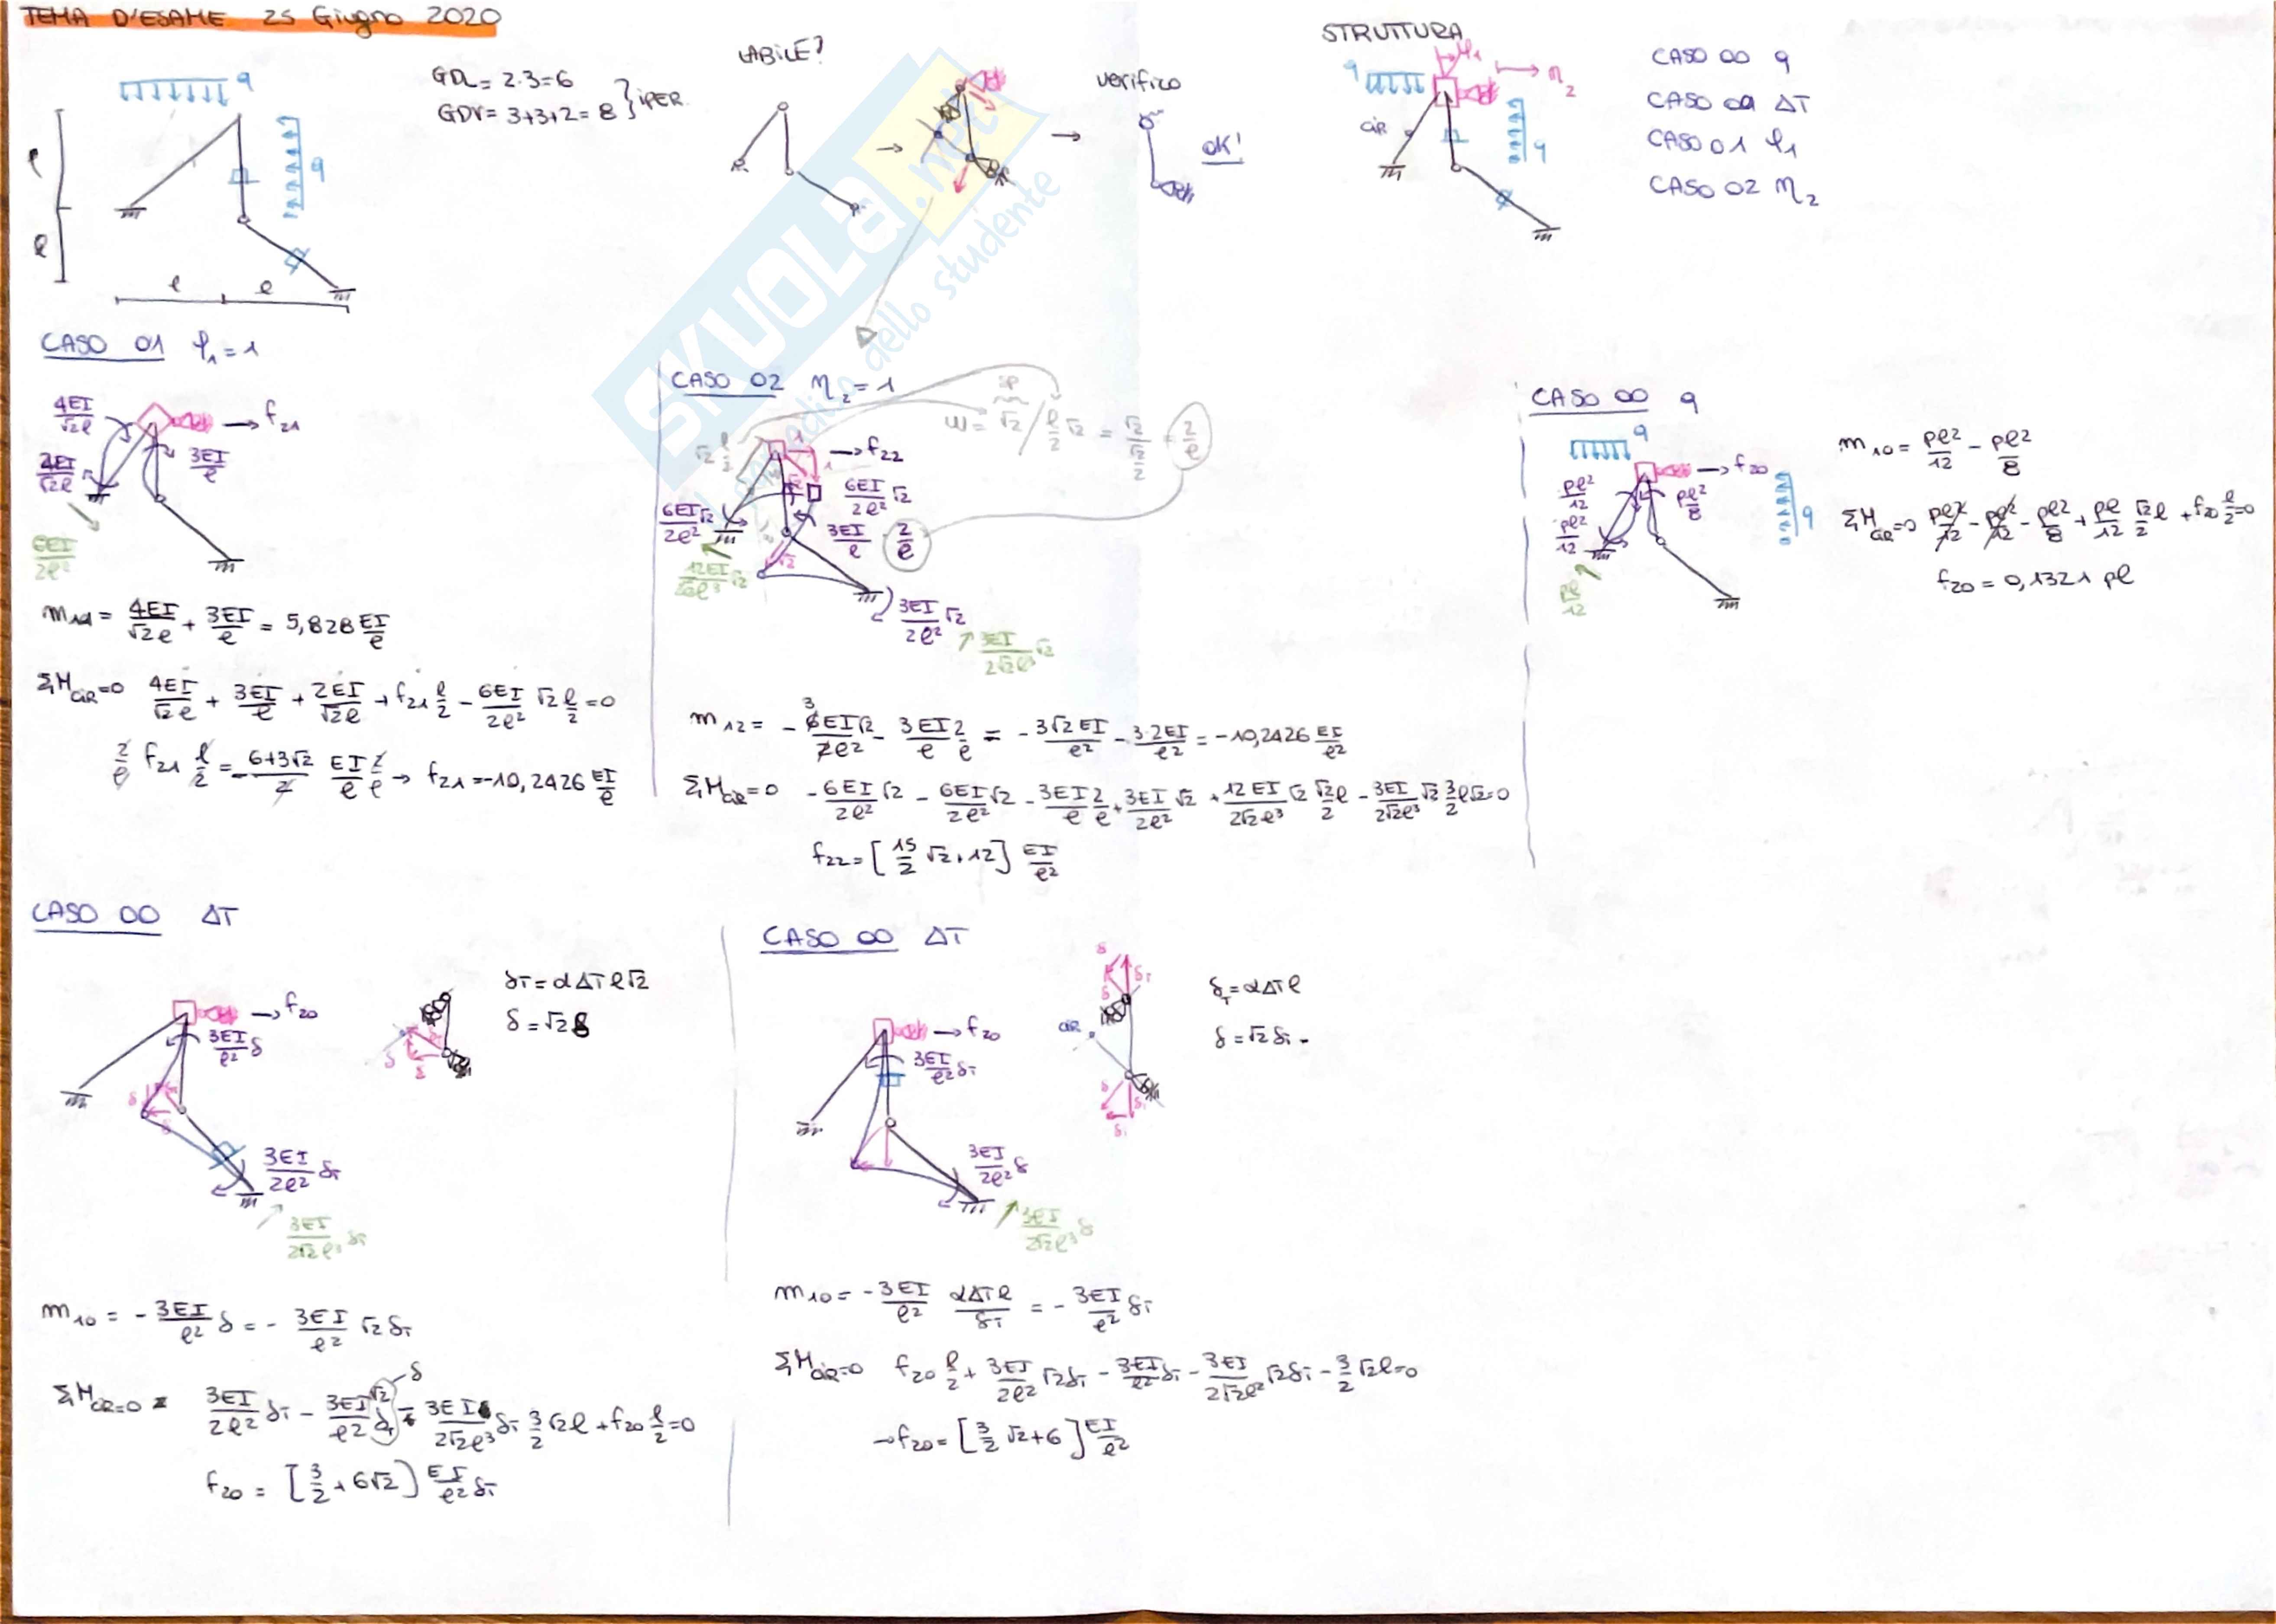 TEMA D'ESAME 25 Giugno 2020
q
q
l
l
l
l
GDL = 2·3=6
GDV = 3+3+2=8 } iPER.
LABILE?
verifico
OK!
STRUTTURA
q
φ₁
η₂
CIR
q
CASO 00 q
CASO 00 ΔT
CASO 01 φ₁
CASO 02 η₂
SKUOLA.net
dello studente
CASO 01 φ₁=1
4EI/√2l
2EI/√2l
3EI/l
f₂₁
6EI/2l²
m₁₁ = 4EI/√2l + 3EI/l = 5,828 EI/l
ΣM_CIR=0 4EI/√2l + 3EI/l + 2EI/√2l + f₂₁ l/2 - 6EI/2l² √2 l/2 = 0
2/l f₂₁ l/2 = - 6+3√2/2 EI/l 2/l → f₂₁ = -10,2426 EI/l
CASO 02 η₂=1
ω = √2 / l/2 √2 = √2/(√2/2) = 2/l
√2 l/2
1
1
f₂₂
6EI/2l² √2
6EI/2l² √2
3EI/l · 2/l
√2
3EI/2l² √2
3EI/2√2l³ √2
m₁₂ = - 6EI√2/2l² - 3EI/l 2/l = - 3√2EI/l² - 3·2EI/l² = -10,2426 EI/l²
ΣM_CIR=0 - 6EI/2l² √2 - 6EI/2l² √2 - 3EI/l 2/l + 3EI/2l² √2 + 12EI/2√2l³ √2 √2/2 l - 3EI/2√2l³ √2 3/2 l√2=0
f₂₂ = [15/2 √2+12] EI/l²
CASO 00 q
q
f₂₀
pl²/12
pl²/12
pl²/8
q
pl/12
m₁₀ = pl²/12 - pl²/8
ΣM_CIR=0 pl²/12 - pl²/12 - pl²/8 + pl/12 √2/2 l + f₂₀ l/2=0
f₂₀ = 0,1321 pl
CASO 00 ΔT
f₂₀
3EI/l² δ
δ
δ
3EI/2l² δT
3EI/2√2l³ δT
δT = αΔTl√2
δ = √2 δ
m₁₀ = - 3EI/l² δ = - 3EI/l² √2 δT
ΣM_CIR=0 = 3EI/2l² δT - 3EI/l² √2 δT - 3EI/2√2l³ δT 3/2 √2l + f₂₀ l/2=0
δ
f₂₀ = [3/2 + 6√2] EI/l² δT
CASO 00 ΔT
f₂₀
3EI/l² δT
3EI/2l² δ
3EI/2√2l³ δ
CIR
δ
δT
δT = αΔTl
δ = √2 δT
m₁₀ = - 3EI/l² αΔTl/δT = - 3EI/l² δT
ΣM_CIR=0 f₂₀ l/2 + 3EI/2l² √2δT - 3EI/l² δT - 3EI/2√2l² √2δT - 3/2 √2l=0
→ f₂₀ = [3/2 √2+6] EI/l²